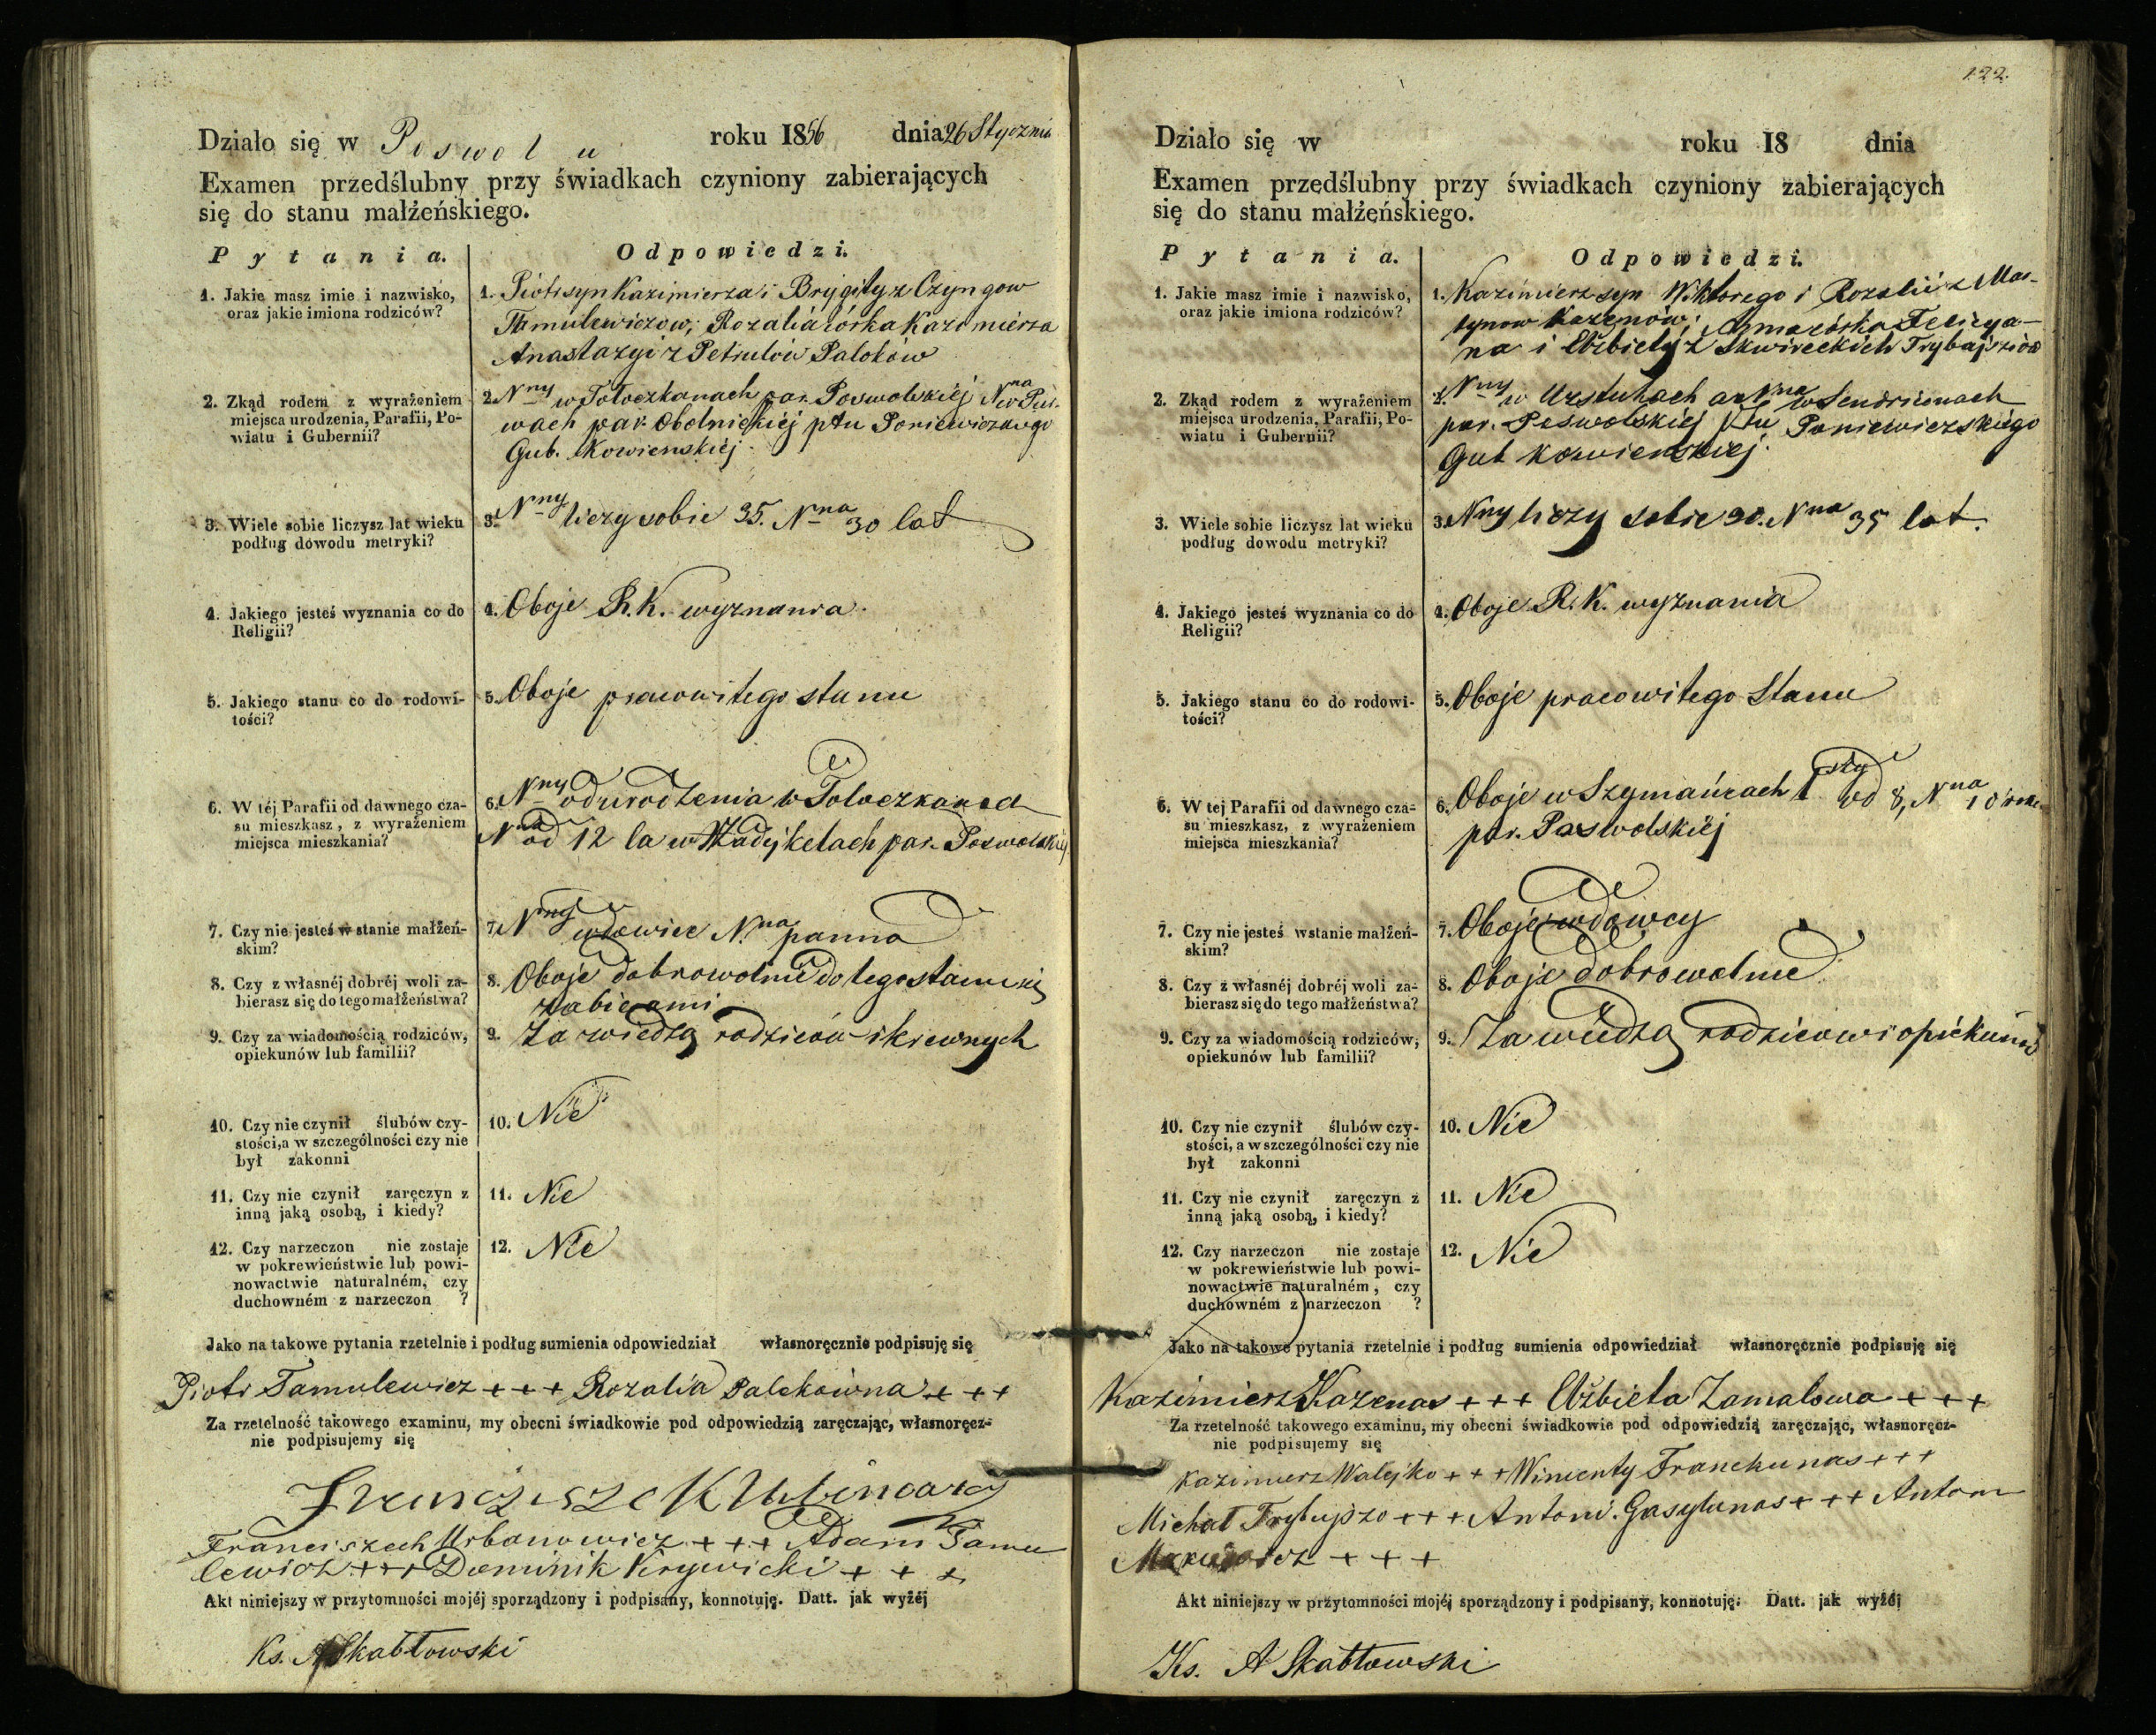 Działo się w Poswolu roku 1856 dnia 26 Stycznia
Examen przedślubny przy świadkach czyniony zabierających
się do stanu małżeńskiego.
Pytania. Odpowiedzi.
1. Jakie masz imie i nazwisko,
oraz jakie imiona rodziców?
1. Piotr syn Kazimierza i Brygity z Czyngow
Tamulewiczow, Rozalia córka Kazimierza
Anastazyi z Petrulów Paloków
2. Zkąd rodem z wyrażeniem
miejsca urodzenia, Parafii, Po-
wiatu i Gubernii?
2. Nny w Tołoczkanach par. Poswolskiej Nna w
wach par. Obolnickiej ptu Poniewiezkiego
Gub. Kowienskiej
3. Wiele sobie liczysz lat wieku
podług dowodu metryki?
3. Nny liczy sobie 35. Nna 30 lat
4. Jakiego jesteś wyznania co do
Religii?
4. Oboje R. K. wyznania.
5. Jakiego stanu co do rodowi-
tości?
5. Oboje pracowitego stanu
6. W téj Parafii od dawnego cza-
su mieszkasz, z wyrażeniem
miejsca mieszkania?
6. Nny od urodzenia w Tołoczkanach
Nna od 12 la w par. Poswolskiej
7. Czy nie jesteś w stanie małżeń-
skim?
7. Nny wdowiec Nna panna
8. Czy z własnéj dobréj woli za-
bierasz się do tego małżeństwa?
8. Oboje dobrowolnie do tego stanu się
zabierami
9. Czy za wiadomością rodziców,
opiekunów lub familii?
9. Za wiedzą rodziców i krewnych
10. Czy nie czynił ślubów czy-
stości, a w szczególności czy nie
był zakonni
10. Nie
11. Czy nie czynił zaręczyn z
inną jaką osobą, i kiedy?
11. Nie
12. Czy narzeczon nie zostaje
w pokrewieństwie lub powi-
nowactwie naturalném, czy
duchowném z narzeczon ?
12. Nie
Jako na takowe pytania rzetelnie i podług sumienia odpowiedział własnoręcznie podpisuję się
Piotr Tamulewicz + + + Rozalia Palokówna + + +
Za rzetelność takowego examinu, my obecni świadkowie pod odpowiedzią zaręczając, własnoręcz-
nie podpisujemy się
Franciszek Urbanowicz + + + Adam Tamu
lewicz + + + Dominik Krywicki + + +
Akt niniejszy w przytomności mojéj sporządzony i podpisany, konnotuję. Datt. jak wyżéj
Ks. A Skabłowski
122.
Działo się w roku 18 dnia
Examen przedślubny przy świadkach czyniony zabierających
się do stanu małżeńskiego.
Pytania. Odpowiedzi.
1. Jakie masz imie i nazwisko,
oraz jakie imiona rodziców?
1. Kazimierz syn Wiktorego i Rozalii z Mar-
tynow Kazenów; Anna córka Felicya-
na i Elżbiety z Skwireckich Trybajsziów
2. Zkąd rodem z wyrażeniem
miejsca urodzenia, Parafii, Po-
wiatu i Gubernii?
2. Nny w a Nna w
par. Poswolskiej Ptu Poniewiezskiego
Gub Kowienskiej.
3. Wiele sobie liczysz lat wieku
podług dowodu metryki?
3. Nny liczy sobie 30. Nna 35 lat.
4. Jakiego jesteś wyznania co do
Religii?
4. Oboje R. K. wyznania
5. Jakiego stanu co do rodowi-
tości?
5. Oboje pracowitego Stanu
6. W tej Parafii od dawnego cza-
su mieszkasz, z wyrażeniem
miejsca mieszkania?
6. Oboje w Szymańcach 1szy od 8, Nna 10
par. Paswolskiéj
7. Czy nie jesteś w stanie małżeń-
skim?
7. Oboje wdowcy
8. Czy z własnéj dobréj woli za-
bierasz się do tego małżeństwa?
8. Oboje dobrowolnie
9. Czy za wiadomością rodziców,
opiekunów lub familii?
9. Za wiedzą rodzicow i opiekunów
10. Czy nie czynił ślubów czy-
stości, a w szczególności czy nie
był zakonni
10. Nie
11. Czy nie czynił zaręczyn z
inną jaką osobą, i kiedy?
11. Nie
12. Czy narzeczon nie zostaje
w pokrewieństwie lub powi-
nowactwie naturalném, czy
duchowném z narzeczon ?
12. Nie
Jako na takowe pytania rzetelnie i podług sumienia odpowiedział własnoręcznie podpisuję się
Kazimierz Kazenas + + + Elżbieta Zamalowa + + +
Za rzetelność takowego examinu, my obecni świadkowie pod odpowiedzią zaręczając, własnoręcz-
nie podpisujemy się
Kazimierz Walejko + + + Wincenty Franckunas + + +
Michał + + + Antoni Gasylunas + + + Antoni
+ + +
Akt niniejszy w przytomności mojéj sporządzony i podpisany, konnotuję. Datt. jak wyżéj
Ks. A Skabłowski